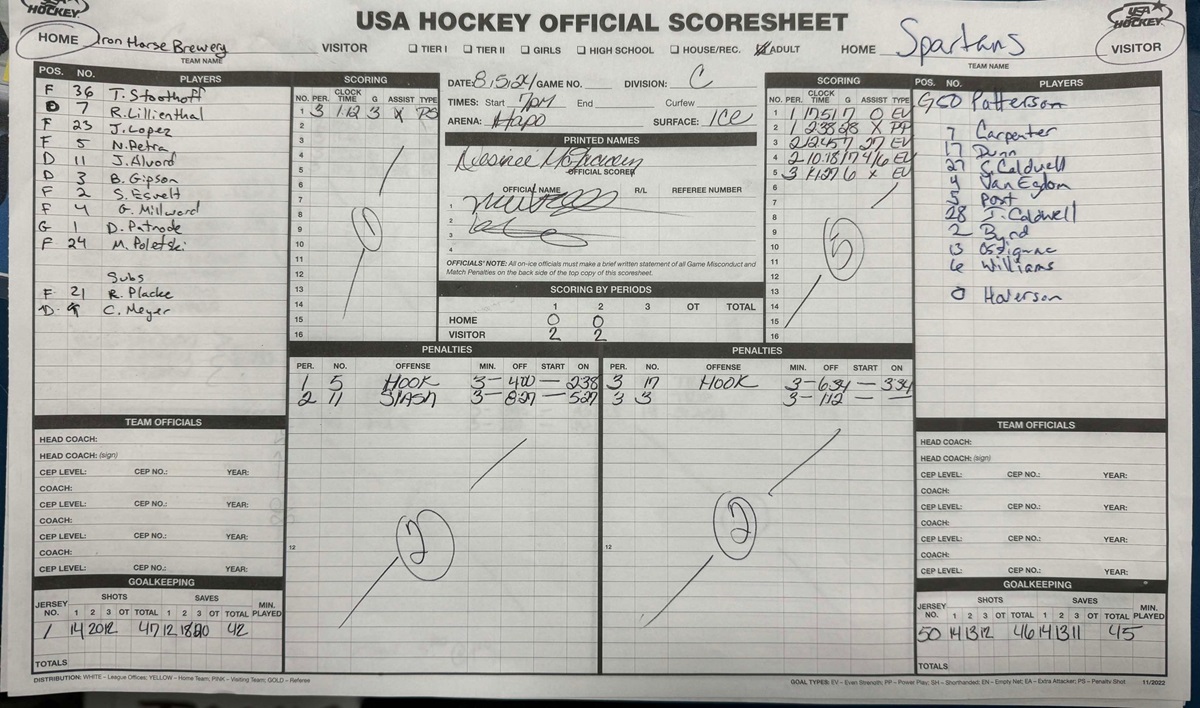 HOCKEY
USA HOCKEY OFFICIAL SCORESHEET
USA HOCKEY
HOME Iron Horse Brewery VISITOR
TEAM NAME
☐ TIER I ☐ TIER II ☐ GIRLS ☐ HIGH SCHOOL ☐ HOUSE/REC. ☒ ADULT
HOME Spartans VISITOR
TEAM NAME
POS. NO. PLAYERS
F 36 T. Stoothoff
D 7 R. Lillienthal
F 23 J. Lopez
F 5 N. Petra
D 11 J. Alvord
D 3 B. Gipson
F 2 S. Esvelt
F 4 G. Millward
G 1 D. Patnode
F 24 M. Poletski
Subs
F 21 R. Placke
D C. Meyer
SCORING
NO. PER. CLOCK TIME G ASSIST TYPE
1 3 1:12 3 X PS
2
3
4
5
6
7
8
9
10
11
12
13
14
15
16
1
DATE: 8,5,24 GAME NO. DIVISION: C
TIMES: Start 7pm End Curfew
ARENA: Hapo SURFACE: ICE
PRINTED NAMES
OFFICIAL SCORER
OFFICIAL NAME R/L REFEREE NUMBER
1
2
3
4
OFFICIALS' NOTE: All on-ice officials must make a brief written statement of all Game Misconduct and
Match Penalties on the back side of the top copy of this scoresheet.
SCORING BY PERIODS
1 2 3 OT TOTAL
HOME 0 0
VISITOR 2 2
SCORING
NO. PER. CLOCK TIME G ASSIST TYPE
1 1 17:51 7 0 EV
2 1 2:38 28 X PP
3 2 12:45 7 27 EV
4 2 10:18 17 4/6 EV
5 3 14:27 6 X EV
6
7
8
9
10
11
12
13
14
15
16
5
POS. NO. PLAYERS
G 50 Patterson
7 Carpenter
17 Dunn
27 C. Caldwell
4 VanEgdom
5 Post
28 J. Caldwell
2 Byrd
13 Ossignac
6 Williams
0 Haterson
PENALTIES
PER. NO. OFFENSE MIN. OFF START ON
1 5 HOOK 3 - 4:00 - 2:38
2 11 SLASH 3 - 8:27 - 5:27
12
2
PENALTIES
PER. NO. OFFENSE MIN. OFF START ON
3 17 HOOK 3 - 6:34 - 3:34
3 3 3 - 1:12 - -
12
2
TEAM OFFICIALS
HEAD COACH:
HEAD COACH: (sign)
CEP LEVEL: CEP NO.: YEAR:
COACH:
CEP LEVEL: CEP NO.: YEAR:
COACH:
CEP LEVEL: CEP NO.: YEAR:
COACH:
CEP LEVEL: CEP NO.: YEAR:
GOALKEEPING
SHOTS SAVES
JERSEY NO. 1 2 3 OT TOTAL 1 2 3 OT TOTAL MIN. PLAYED
1 14 20 12 47 12 18 42
TOTALS
TEAM OFFICIALS
HEAD COACH:
HEAD COACH: (sign)
CEP LEVEL: CEP NO.: YEAR:
COACH:
CEP LEVEL: CEP NO.: YEAR:
COACH:
CEP LEVEL: CEP NO.: YEAR:
COACH:
CEP LEVEL: CEP NO.: YEAR:
GOALKEEPING
SHOTS SAVES
JERSEY NO. 1 2 3 OT TOTAL 1 2 3 OT TOTAL MIN. PLAYED
50 14 13 12 46 14 13 11 45
TOTALS
DISTRIBUTION: WHITE – League Offices; YELLOW – Home Team; PINK – Visiting Team; GOLD – Referee
GOAL TYPES: EV – Even Strength; PP – Power Play; SH – Shorthanded; EN – Empty Net; EA – Extra Attacker; PS – Penalty Shot 11/2022